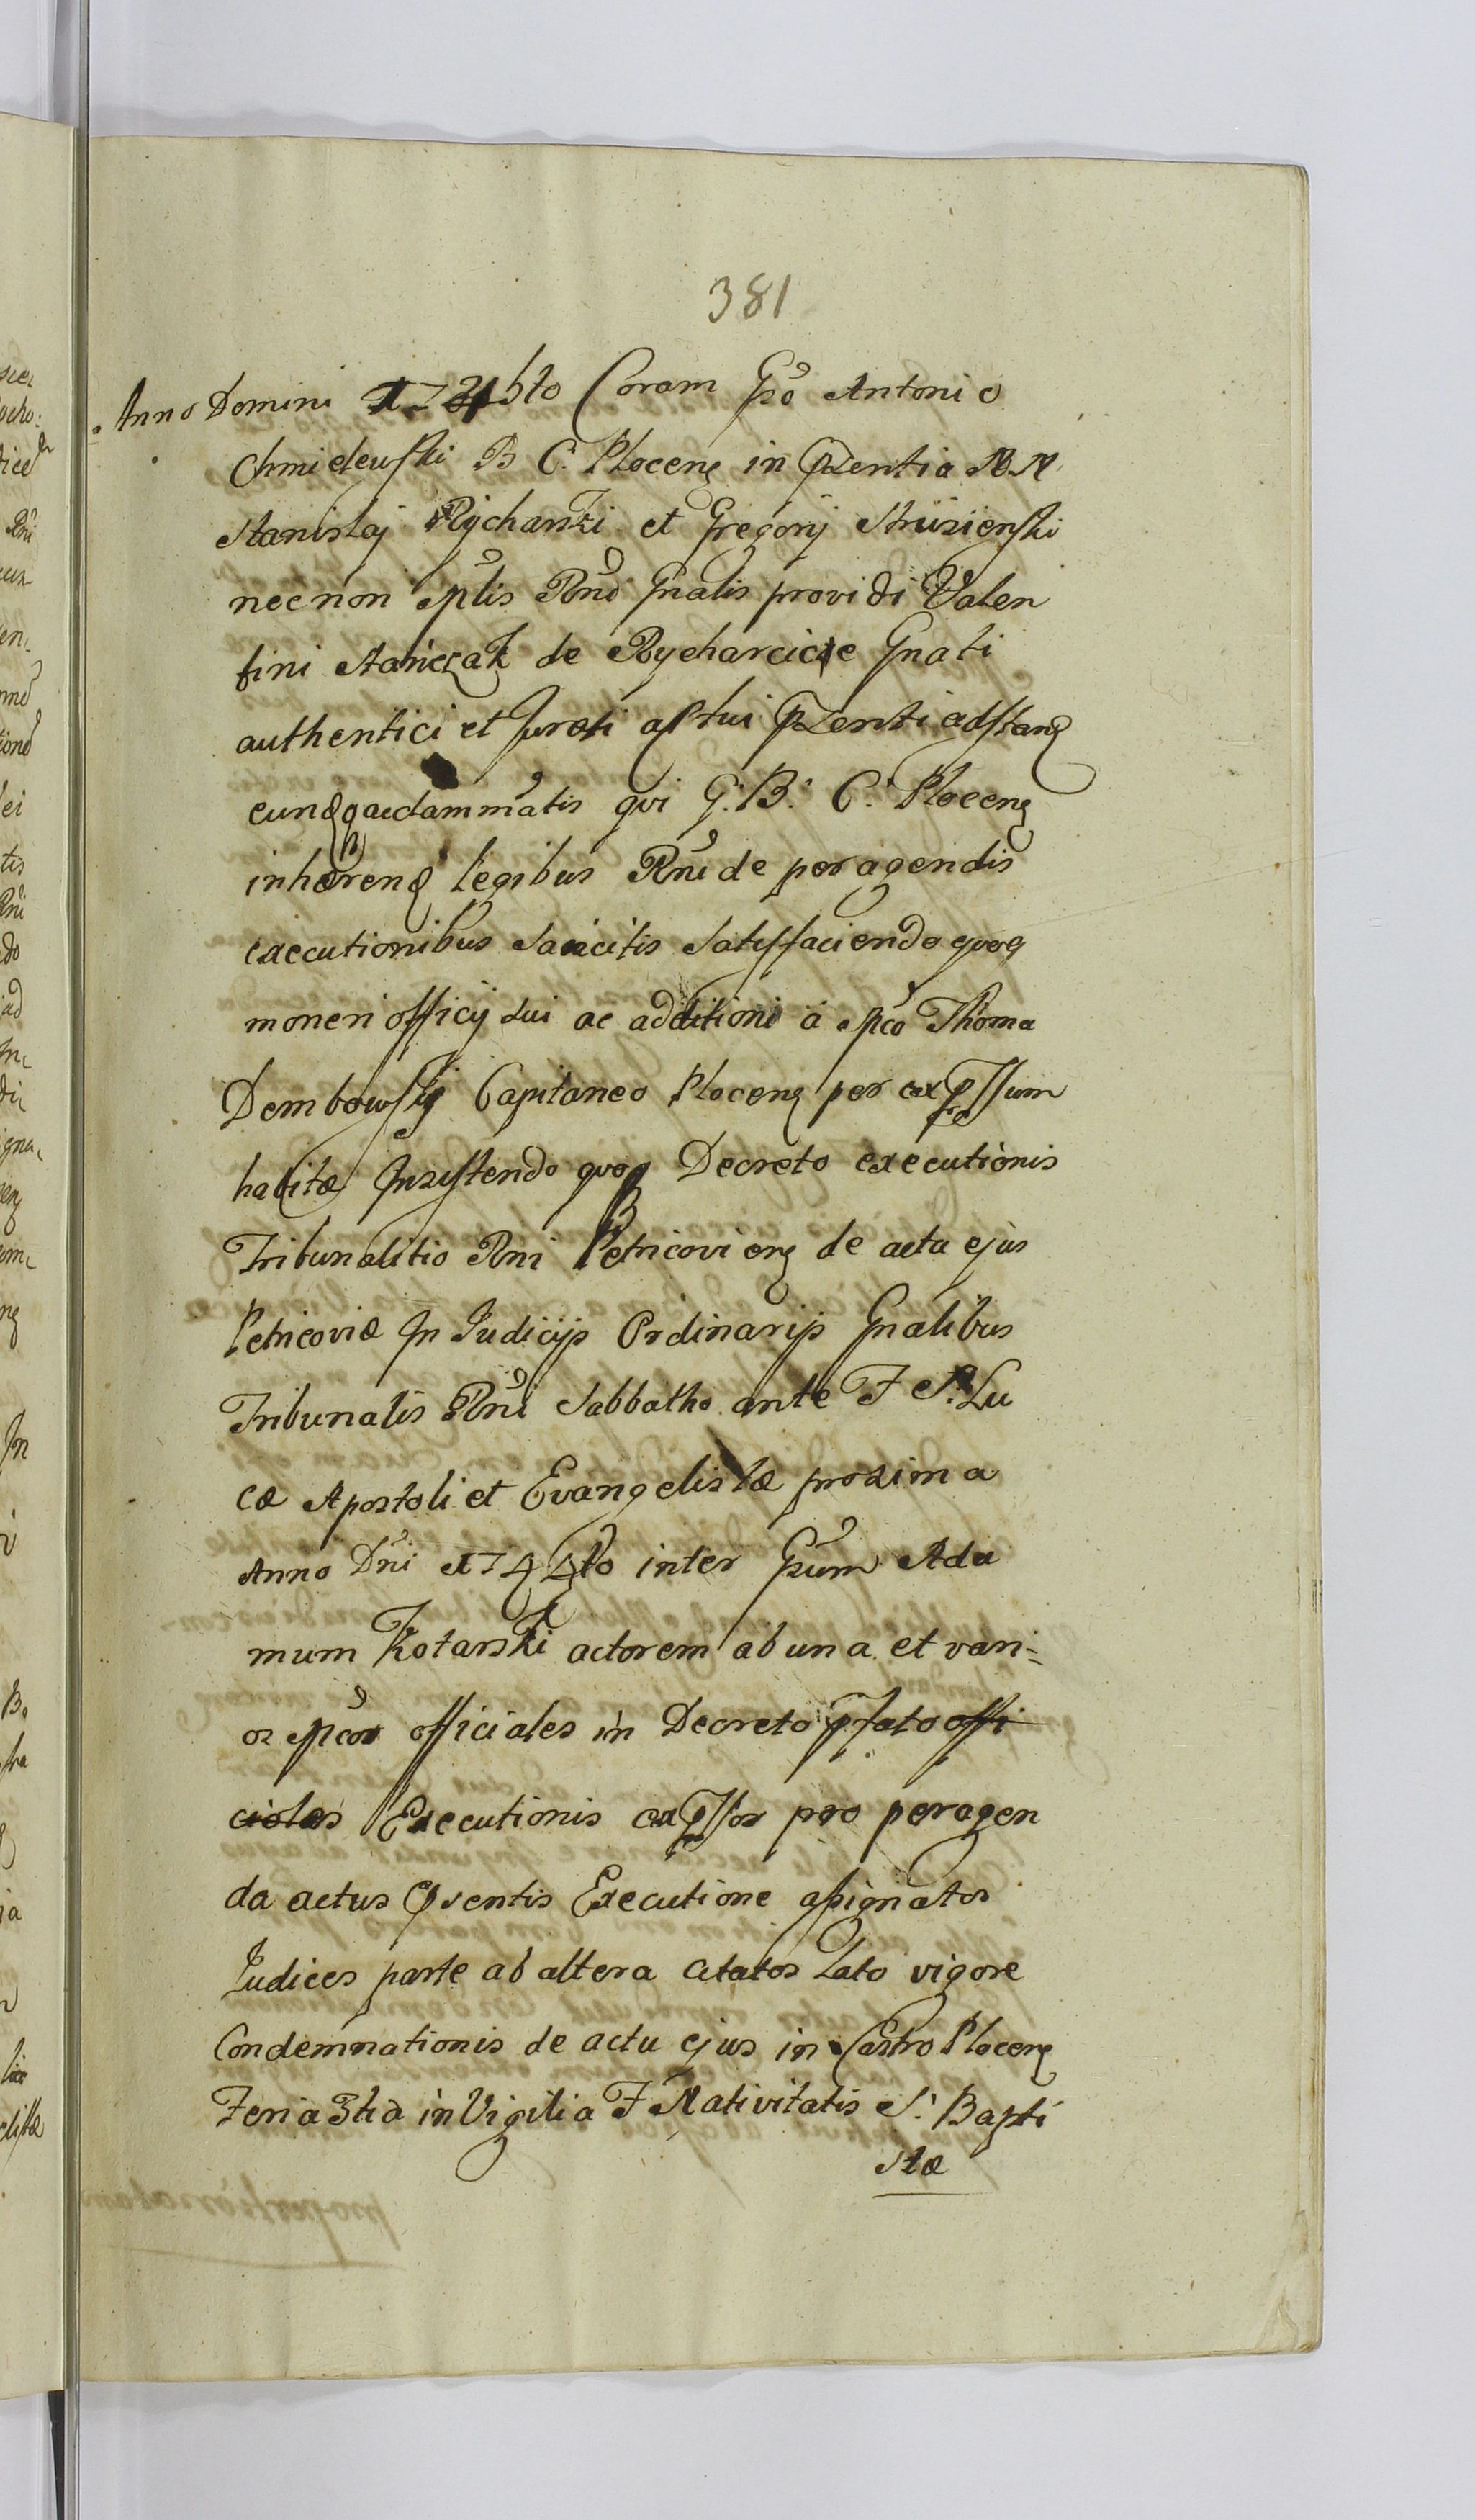 381
Anno Domini 1745to Coram Gso Antonio
Chmielewski B C. Plocens in pzentia NN
Stanislaj Rycharski et Gregorij Strusienski
necnon Mlis Rni Gnalis providi Valen
tini Stanczak de Rycharcice Gnati
authentici et Jurati actui pzenti adstans
eunq acclammatis qvi G. B. C. Plocens
inhærend legibus Rni de peragendis
executionibus Sancitis Satisfaciendo qvoq
moneri officij sui ac additioni a Mco Thoma
Dembowskij Capitaneo Plocens per expssum
habitæ Insistendo qvoq Decreto executionis
Tribunalitio Rni Petricoviens de actu ejus
Petricoviæ In Judicijs Ordinarijs Gnalibus
Tribunalis Rni Sabbatho ante F S. Lu
cæ Apostoli et Evangelistæ proxima
Anno Dni 1744to inter Gsum Ada
mum Kotarski actorem ab una et vari-
os Mcos officiales in Decreto pfato offi
ciales Executionis expssos pro peragen
da actus pventis Executione assignatos
Judices parte ab altera citatos Lato vigore
Condemnationis de actu ejus in Castro Plocens
Feria 3tia in Vigilia F Nativitatis S. Bapti
stæ